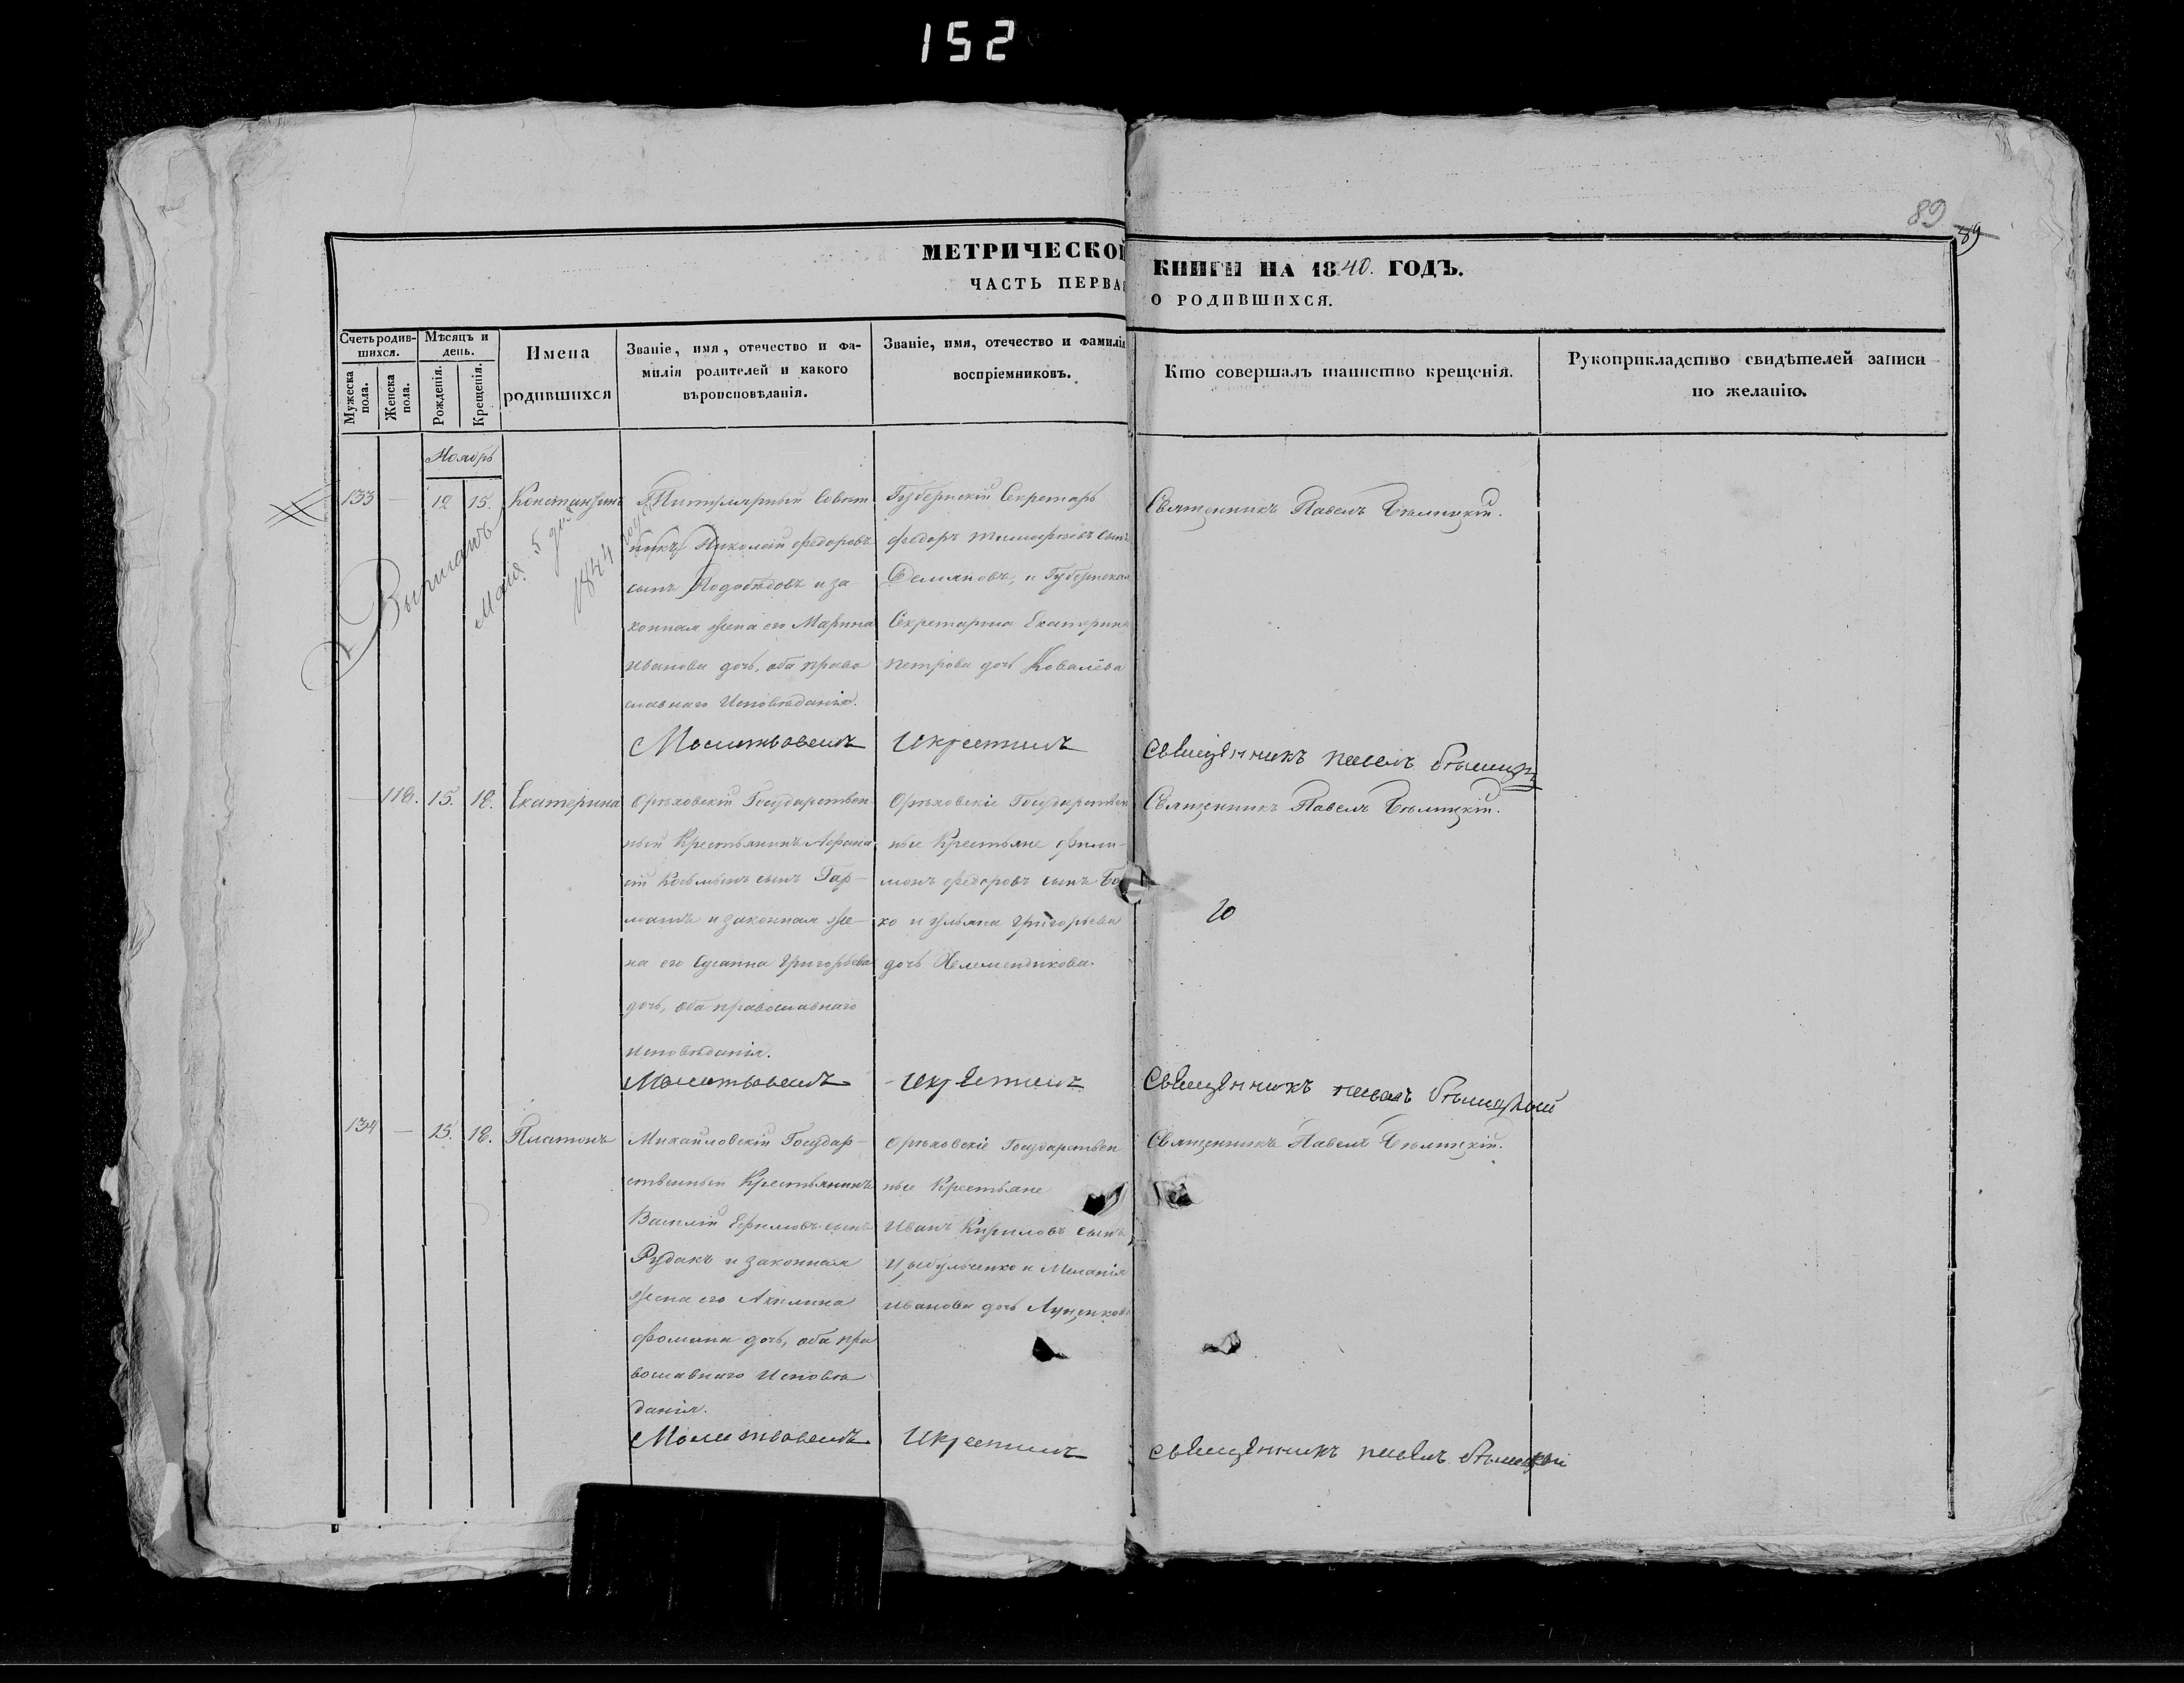 152
89
89
МЕТРИЧЕСКОЙ КНИГИ НА 1840. ГОДЪ.
ЧАСТЬ ПЕРВАЯ О РОДИВШИХСЯ.
Счетъ родившихся.
Мужеска пола.
Женска пола.
Мѣсяцъ и день.
Рожденія.
Крещенія.
Имена родившихся
Званіе, имя, отечество и фа-
милія родителей и какого
вѣроисповѣданія.
Званіе, имя, отечество и фамилія
воспріемниковъ.
Кто совершалъ таинство крещенія.
Рукоприкладство свидѣтелей записи
по желанію.
Ноябрь
133 — 12 15. Константинъ
Титулярный Совѣт
никъ Николай Федоровъ
сынъ Подобѣдовъ и за
конная жена его Марина
Иванова дочь, оба право
славнаго Исповѣданія.
Губернскій Секретарь
Федоръ Тимофѣевъ сынъ
Демяновъ, и Губернская
Секретарша Екатерина
Петрова дочь Ковалёва
Священникъ Павелъ Бѣлицкій.
Выписано
Маія 5 дня
1844 года
Молитвовалъ И крестилъ Священникъ Павелъ Бѣлицкій
— 118. 15. 18. Екатерина
Орѣховскій Государствен
ный Крестьянинъ Афана
сій Козьминъ сынъ Гар-
машъ и законная же-
на его Сусанна Григорьева
дочь, оба православнаго
исповѣданія.
Орѣховскіе Государствен
ные Крестьяне Фили-
монъ Федоровъ сынъ Бо
ко и Ульяна Григорьева
дочь
Священникъ Павелъ Бѣлицкій.
20
Молитвовалъ И крестилъ Священникъ Павелъ Бѣлицкій
134 — 15. 18. Платонъ
Михайловскій Государ-
ственный Крестьянинъ
Василій Ефимовъ сынъ
Рудакъ и законная
жена его Акилина
Фомина дочь, оба пра
вославнаго Исповѣ
данія.
Орѣховскіе Государствен
ные Крестьяне
Иванъ Кириловъ сынъ
Цыбульченко и Меланія
Иванова дочь Луценкова
Священникъ Павелъ Бѣлицкій.
Молитвовалъ И крестилъ Священникъ Павелъ Бѣлицкій